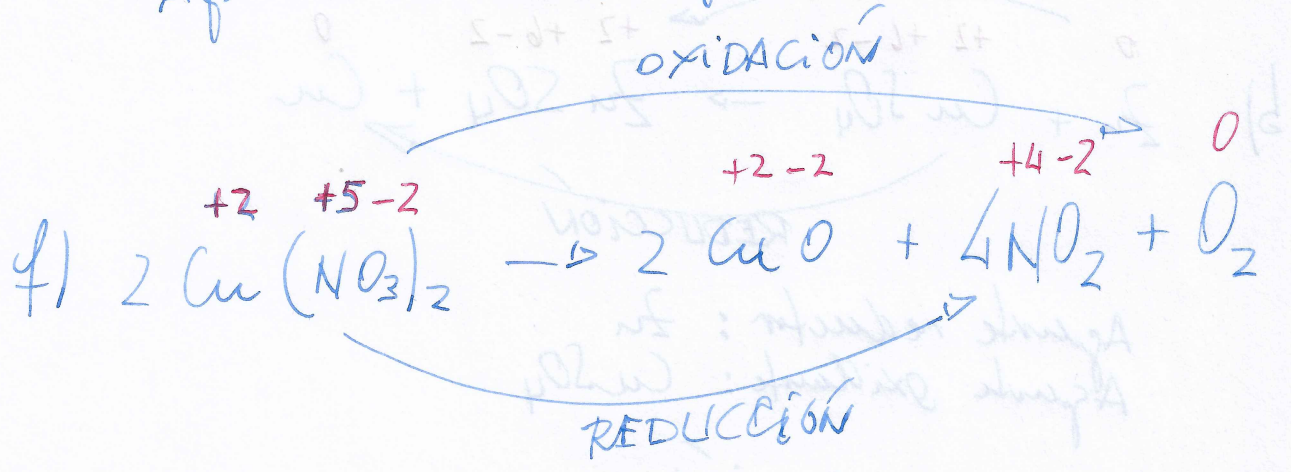 OXIDACIÓN
+2 +5 -2 +2 -2 +4 -2 0
f) 2 Cu (NO₃)₂ → 2 CuO + 4NO₂ + O₂
REDUCCIÓN